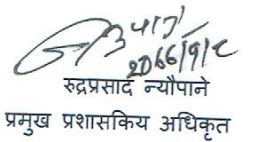 2066/9/8
रुद्रप्रसाद न्यौपाने
प्रमुख प्रशासकिय अधिकृत